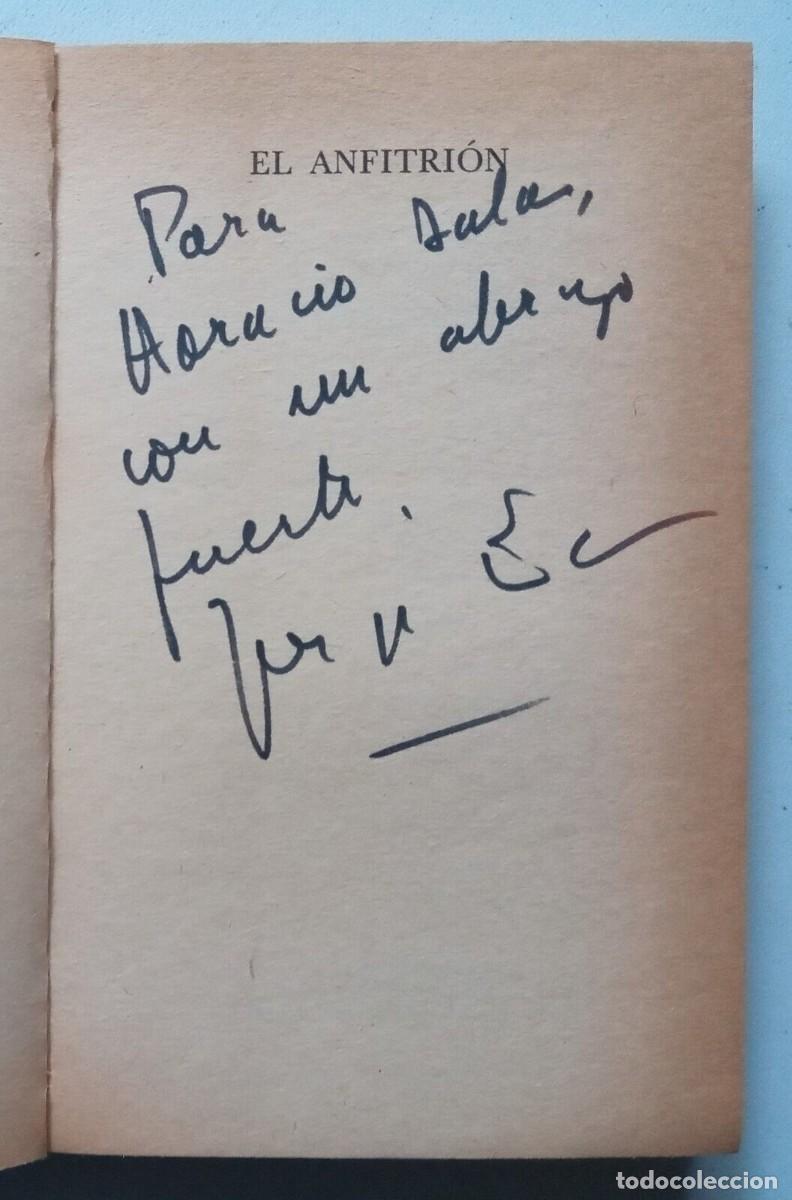 EL ANFITRIÓN
Para
Horacio Salas,
con un abrazo
fuerte.
Jorge E
todocoleccion